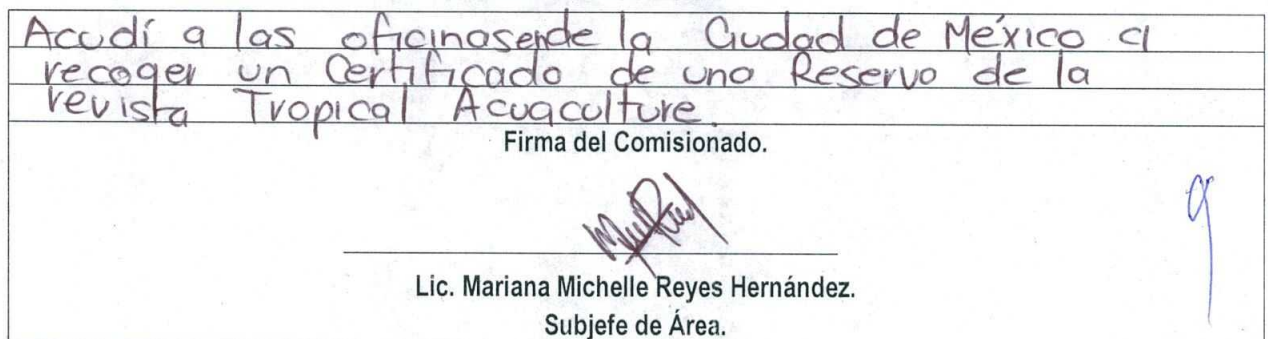 Acudí a las oficinas de la Ciudad de México a
recoger un Certificado de una Reserva de la
revista Tropical Acuaculture.
Firma del Comisionado.
Lic. Mariana Michelle Reyes Hernández.
Subjefe de Área.